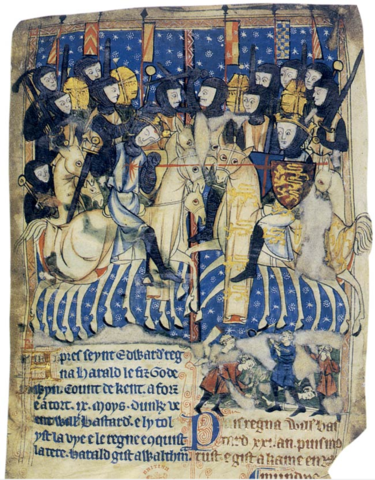 pres seynt Edward reg
na Harald le fiz Gode
Wyn. Counte de Kent. a forz
e a tort. ix. moys. dunke ve
ent Will Bastard. e ly tol
yst la vye e le regne conquist
la tere. Harald gist a Walthm.
regna Will bas
tard xxi. an. puis mo
rust. e gist a kame en
mundie